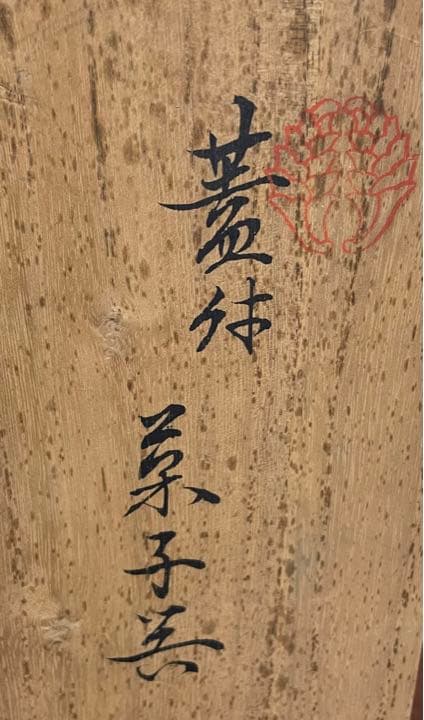 蓋付
菓子器